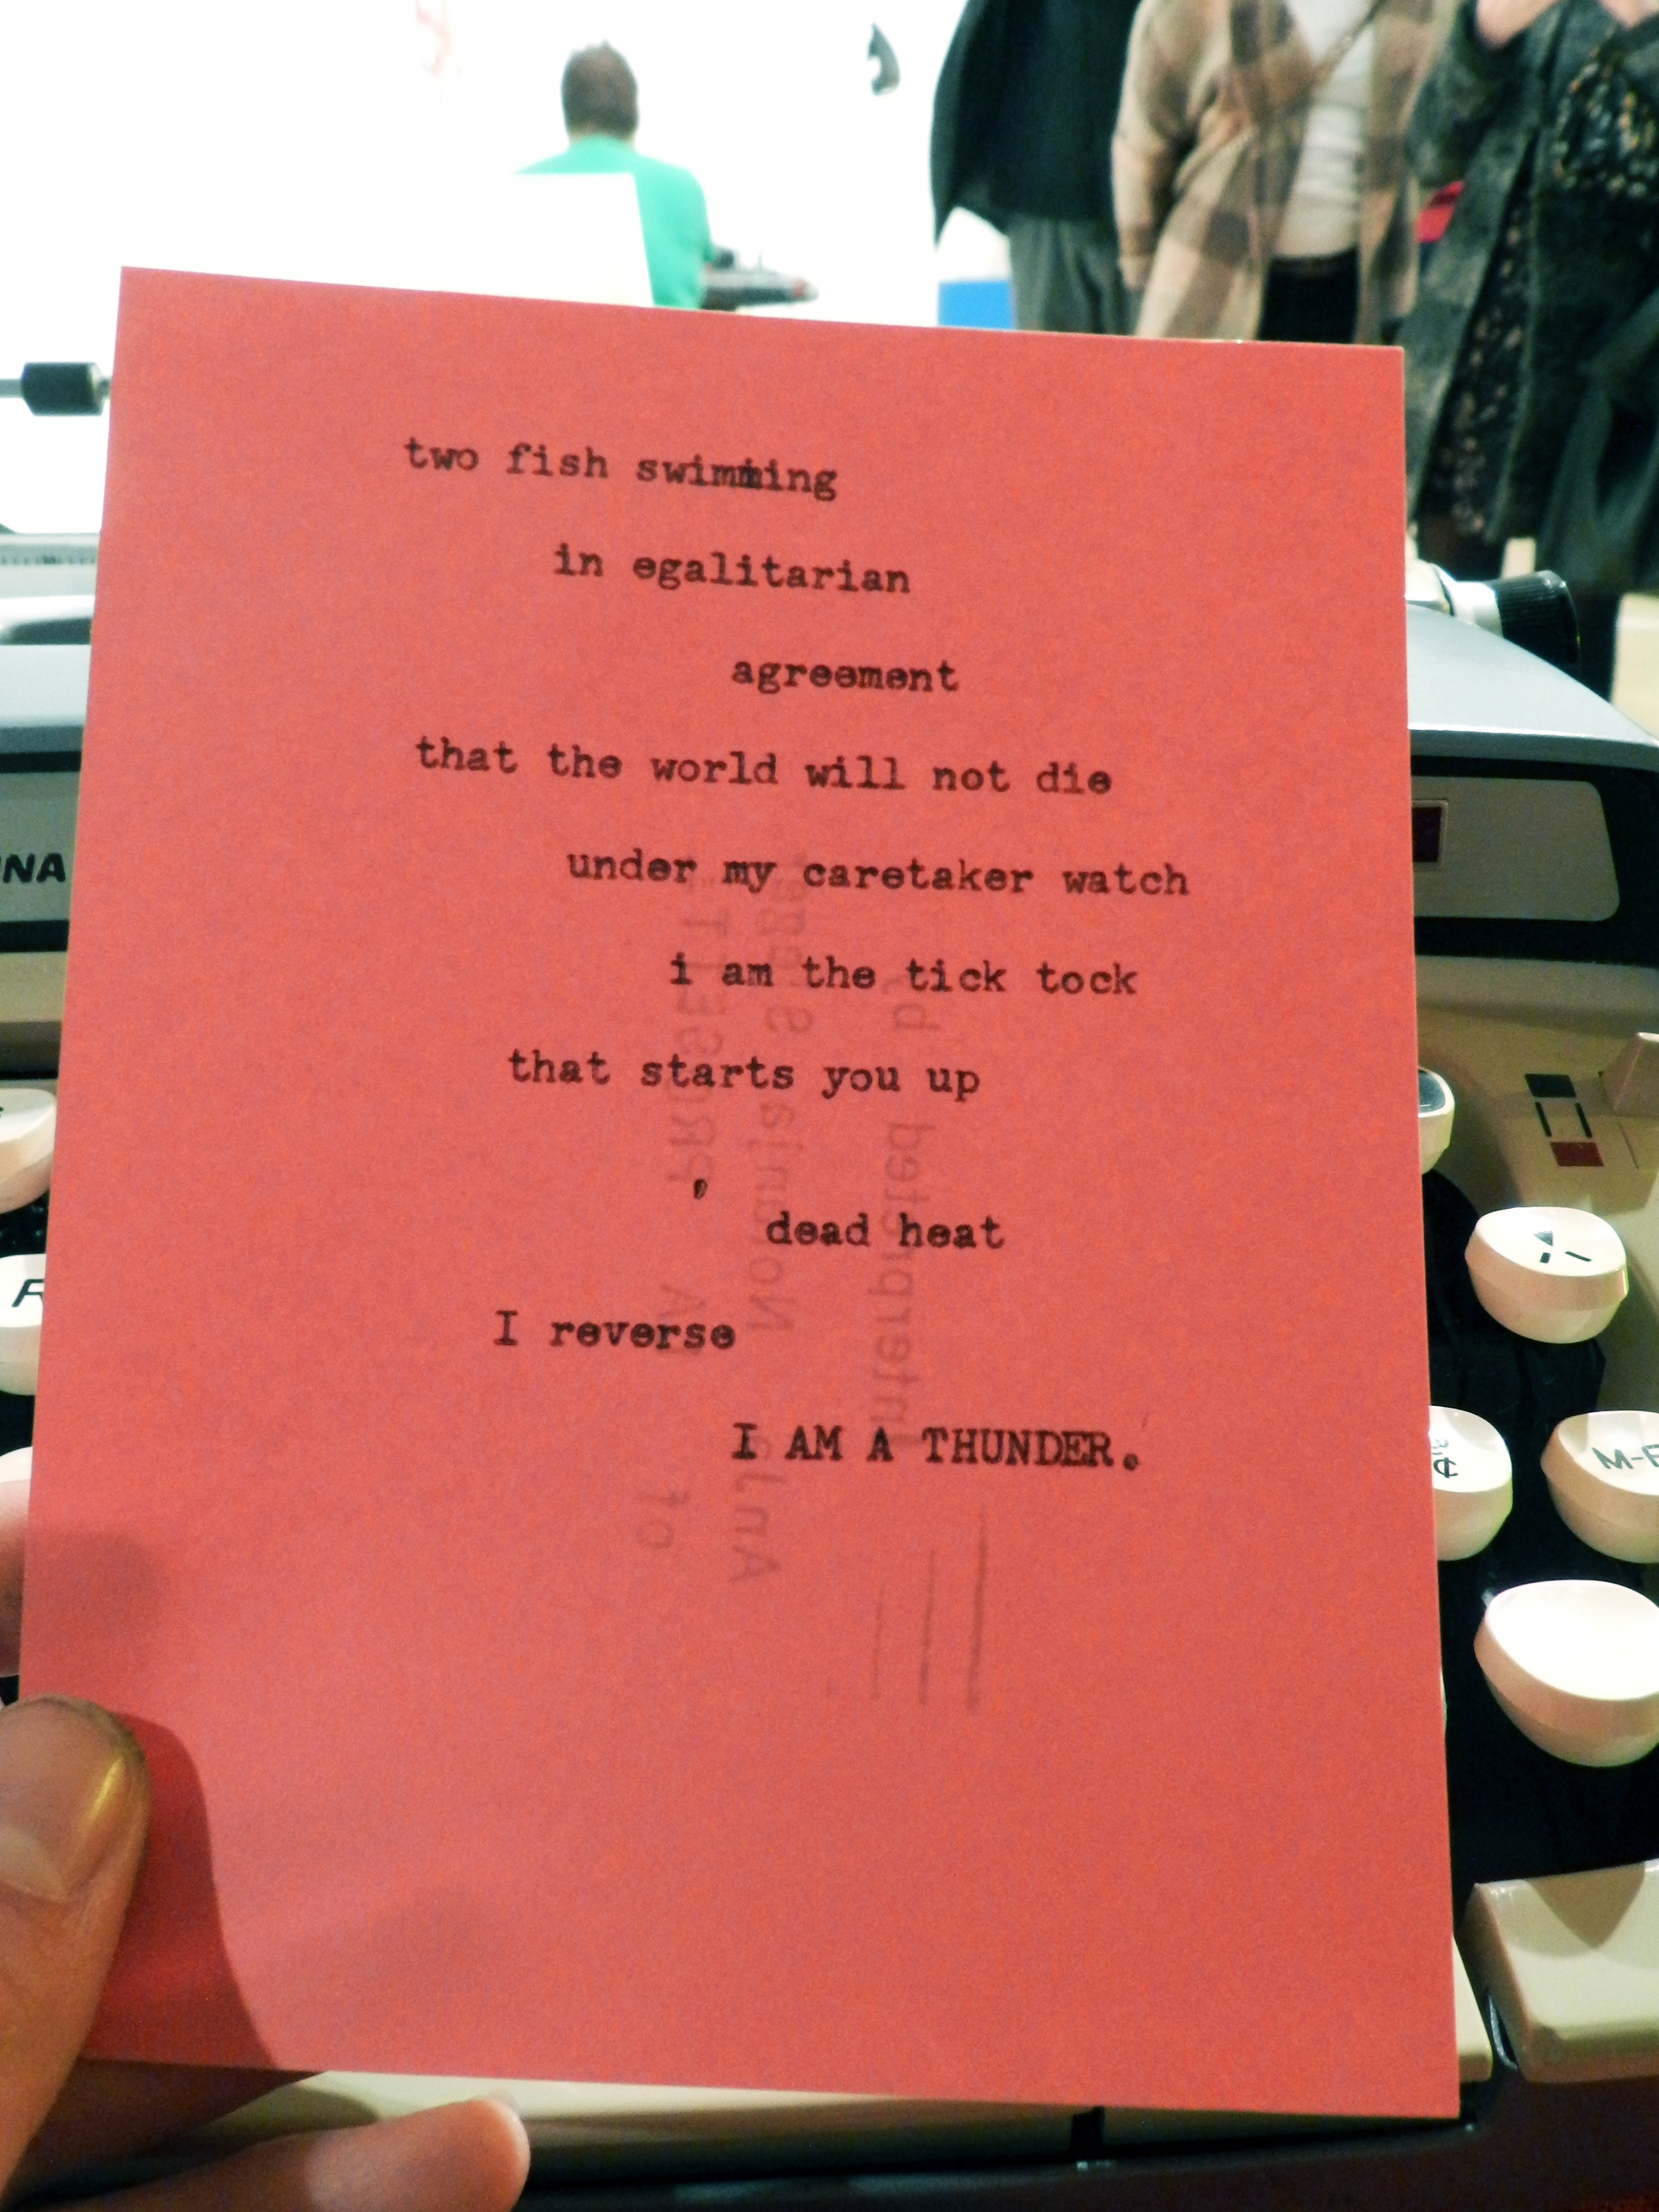 two fish swimming
in egalitarian
agreement
that the world will not die
under my caretaker watch
i am the tick tock
that starts you up
,
dead heat
I reverse
I AM A THUNDER.
M-R